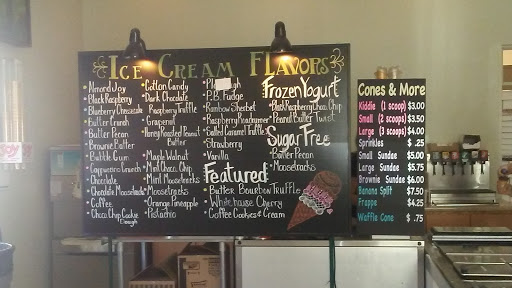 Ice Cream Flavors
Almond Joy
Black Raspberry
Blueberry Cheesecake
Butter Crunch
Butter Pecan
Brownie Batter
Bubble Gum
Cappuccino Crunch
Chocolate
Chocolate Moosetracks
Coffee
Choco Chip Cookie
Dough
Cotton Candy
Dark Chocolate
Raspberry Truffle
Grapenut
Honey Roasted Peanut
Butter
Maple Walnut
Mint Choco. Chip
Mint Moosetracks
Moosetracks
Orange Pineapple
Pistachio
P.B. Fudge
Rainbow Sherbet
Salted Caramel Truffle
Strawberry
Vanilla
Featured
Butter Bourbon Truffle
Whitehouse Cherry
Coffee Cookies & Cream
Frozen Yogurt
Black Raspberry Choc. Chip
Peanut Butter Twist
Sugar Free
Butter Pecan
Moosetracks
Cones & More
Kiddie (1 scoop) $3.00
Small (2 scoops) $3.50
Large (3 scoops) $4.00
Sprinkles $ .25
Small Sundae $5.00
Large Sundae $5.75
Brownie Sundae $6.00
Banana Split $7.50
Frappe $4.25
Waffle Cone $ .75